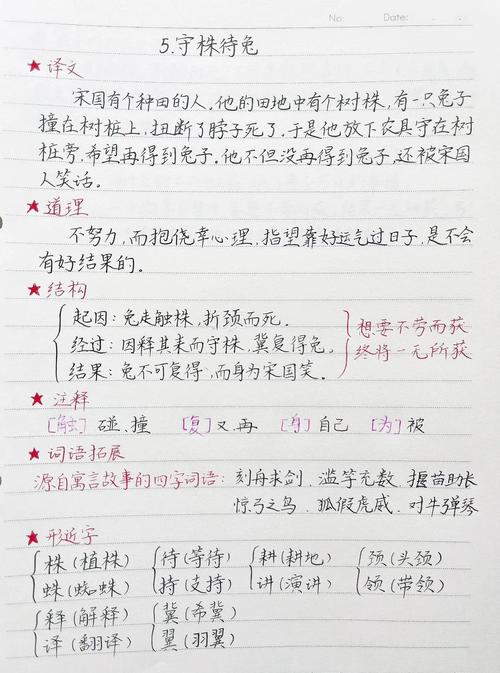 No:
Date:
5.守株待兔
★译文
宋国有个种田的人,他的田地中有个树株,有一只兔子
撞在树桩上,扭断了脖子死了。于是他放下农具守在树
桩旁,希望再得到兔子。他不但没再得到兔子,还被宋国
人笑话。
★道理
不努力,而抱侥幸心理,指望靠好运气过日子,是不会
有好结果的。
★结构
起因:兔走触株,折颈而死。
经过:因释其耒而守株,冀复得兔。
结果:兔不可复得,而身为宋国笑。
想要不劳而获
终将一无所获
★注释
[触]碰.撞 [复]又.再 [身]自己 [为]被
★词语拓展
源自寓言故事的四字词语:刻舟求剑、滥竽充数、揠苗助长
惊弓之鸟、狐假虎威、对牛弹琴
★形近字
株(植株) 待(等待) 耕(耕地) 颈(头颈)
蛛(蜘蛛) 持(支持) 讲(演讲) 领(带领)
释(解释) 冀(希冀)
译(翻译) 翼(羽翼)